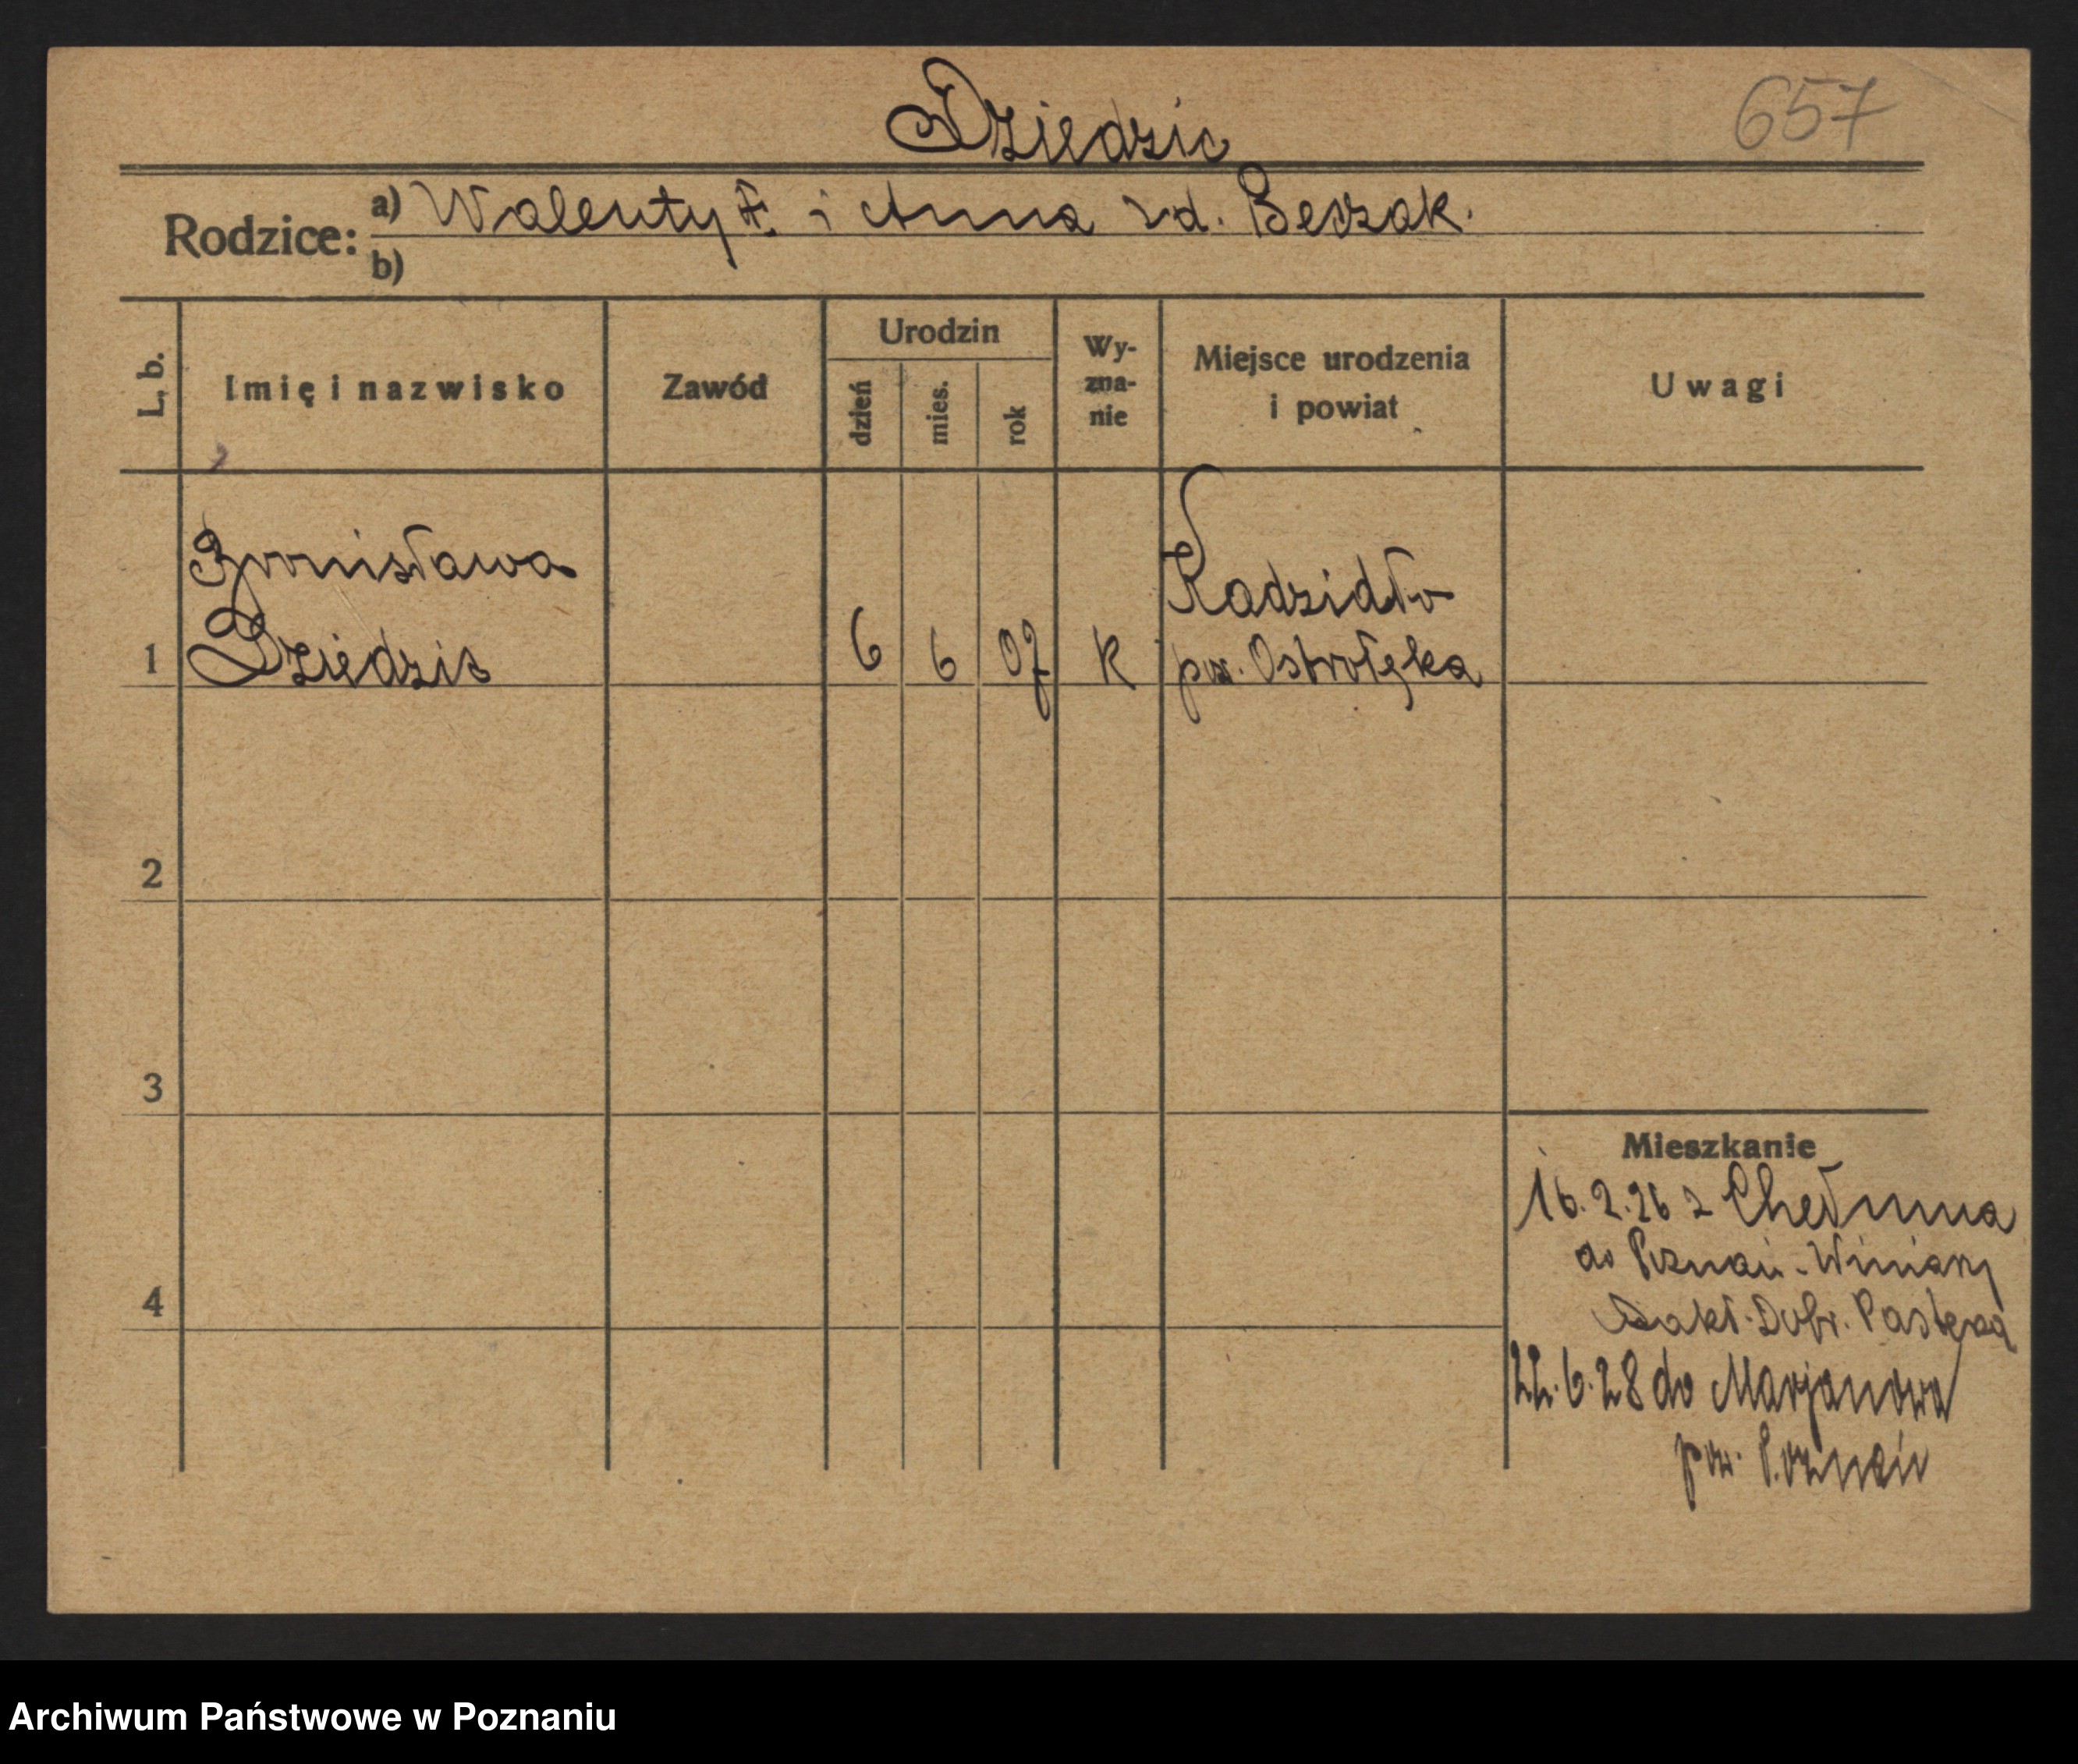 Dziedzic
657
Rodzice: a) Walenty i Anna zd. Bedzak.
b)
L. b.
Imię i nazwisko
Zawód
Urodzin
dzień
mies.
rok
Wy-
zna-
nie
Miejsce urodzenia
i powiat
Uwagi
Bronisława
1 Dziedzic 6 6 07 K
Kadzidło
pow. Ostrołęka
2
3
4
Mieszkanie
16.2.26 z Chełmna
do Poznań-Winiary
Zakł. Dobr. Pasterza
22.6.28 do Marjanowa
pow. Poznań
Archiwum Państwowe w Poznaniu